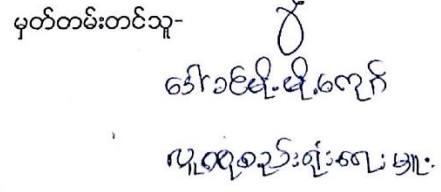 မှတ်တမ်းတင်သူ-
ဒေါ်ခင်မိုးမိုးကျော်
လူထုစည်းရုံးရေးမှူး